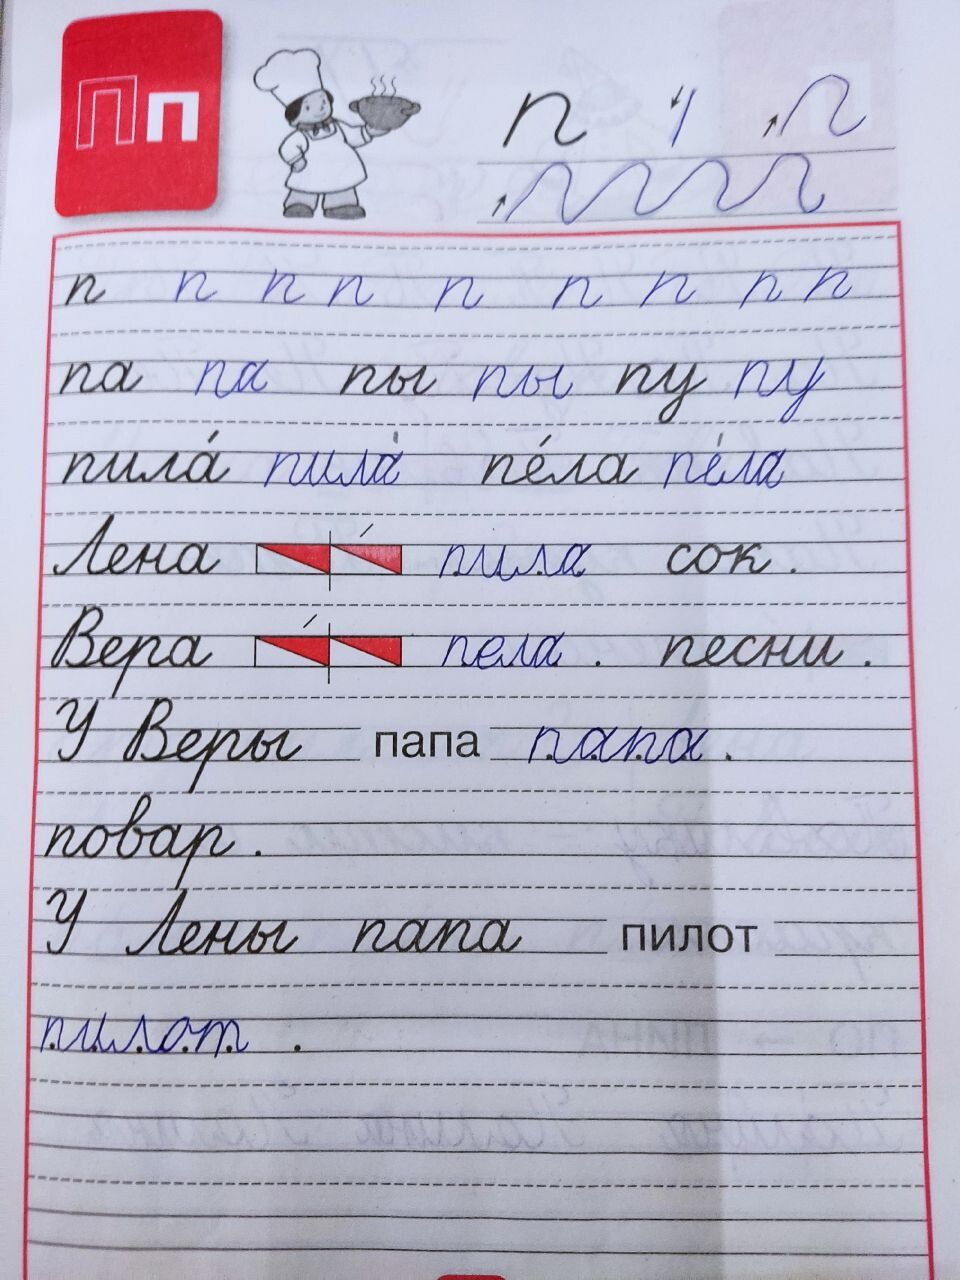 Пп
п
п п п п п п п п п
па па пы пы пу пу
пила́ пила́ пе́ла пе́ла
Лена пила сок.
Вера пела . песни.
У Веры папа папа.
повар.
У Лены папа пилот
пилот .